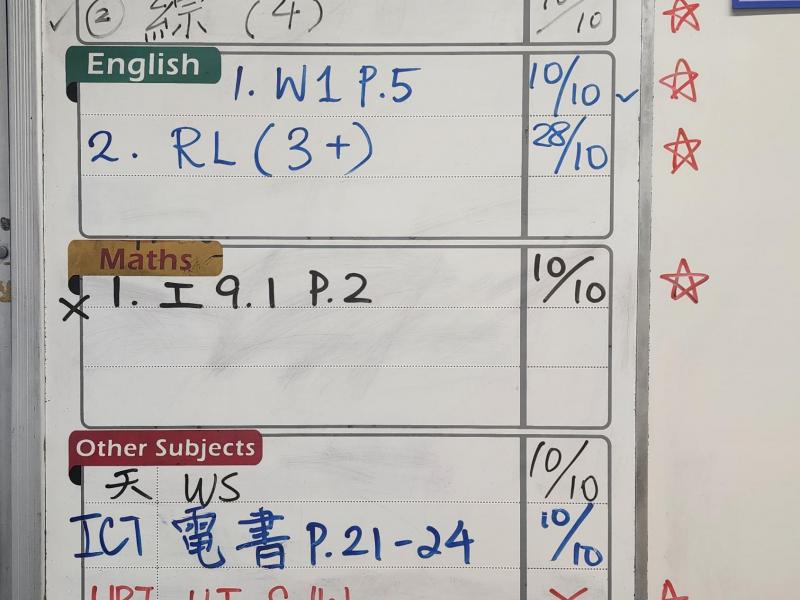 ② 綜 (4) 10/10
English
1. W1 P.5 10/10
2. RL (3+) 28/10
Maths
1. 工 9.1 P.2 10/10
Other Subjects
天 WS 10/10
ICT 電書 P.21-24 10/10